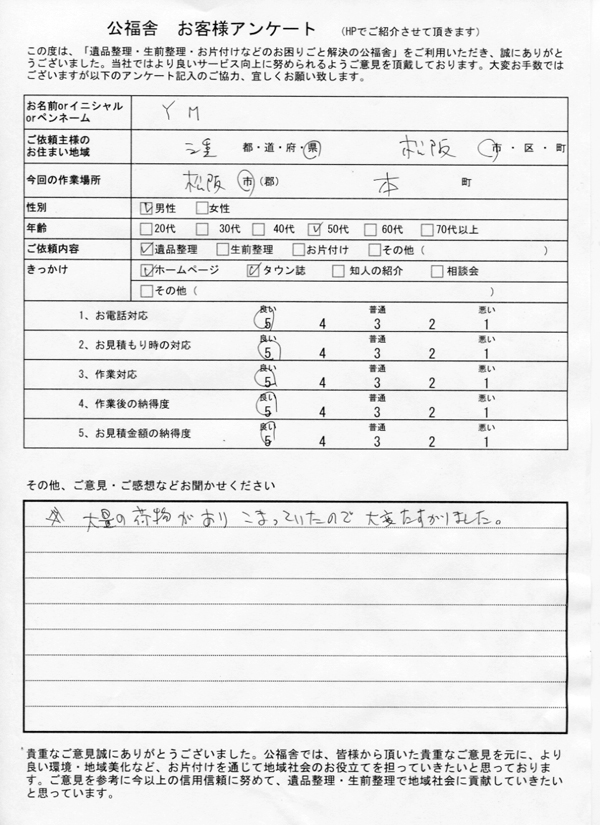 公福舎 お客様アンケート (HPでご紹介させて頂きます)
この度は、「遺品整理・生前整理・お片付けなどのお困りごと解決の公福舎」をご利用いただき、誠にありがと
うございました。当社ではより良いサービス向上に努められるようご意見を頂戴しております。大変お手数では
ございますが以下のアンケート記入のご協力、宜しくお願い致します。
お名前orイニシャル
orペンネーム
Y M
ご依頼主様の
お住まい地域
三重 都・道・府・県 松阪 市・区・町
今回の作業場所 松阪 市(郡) 本 町
性別 ☑男性 □女性
年齢 □20代 □30代 □40代 ☑50代 □60代 □70代以上
ご依頼内容 ☑遺品整理 □生前整理 □お片付け □その他( )
きっかけ ☑ホームページ ☑タウン誌 □知人の紹介 □相談会
□その他( )
良い 普通 悪い
1、お電話対応 5 4 3 2 1
良い 普通 悪い
2、お見積もり時の対応 5 4 3 2 1
良い 普通 悪い
3、作業対応 5 4 3 2 1
良い 普通 悪い
4、作業後の納得度 5 4 3 2 1
良い 普通 悪い
5、お見積金額の納得度 5 4 3 2 1
その他、ご意見・ご感想などお聞かせください
☆ 大量の荷物があり こまっていたので 大変たすかりました。
貴重なご意見誠にありがとうございました。公福舎では、皆様から頂いた貴重なご意見を元に、より
良い環境・地域美化など、お片付けを通じて地域社会のお役立てを担っていきたいと思っておりま
す。ご意見を参考に今以上の信用信頼に努めて、遺品整理・生前整理で地域社会に貢献していきたい
と思っています。